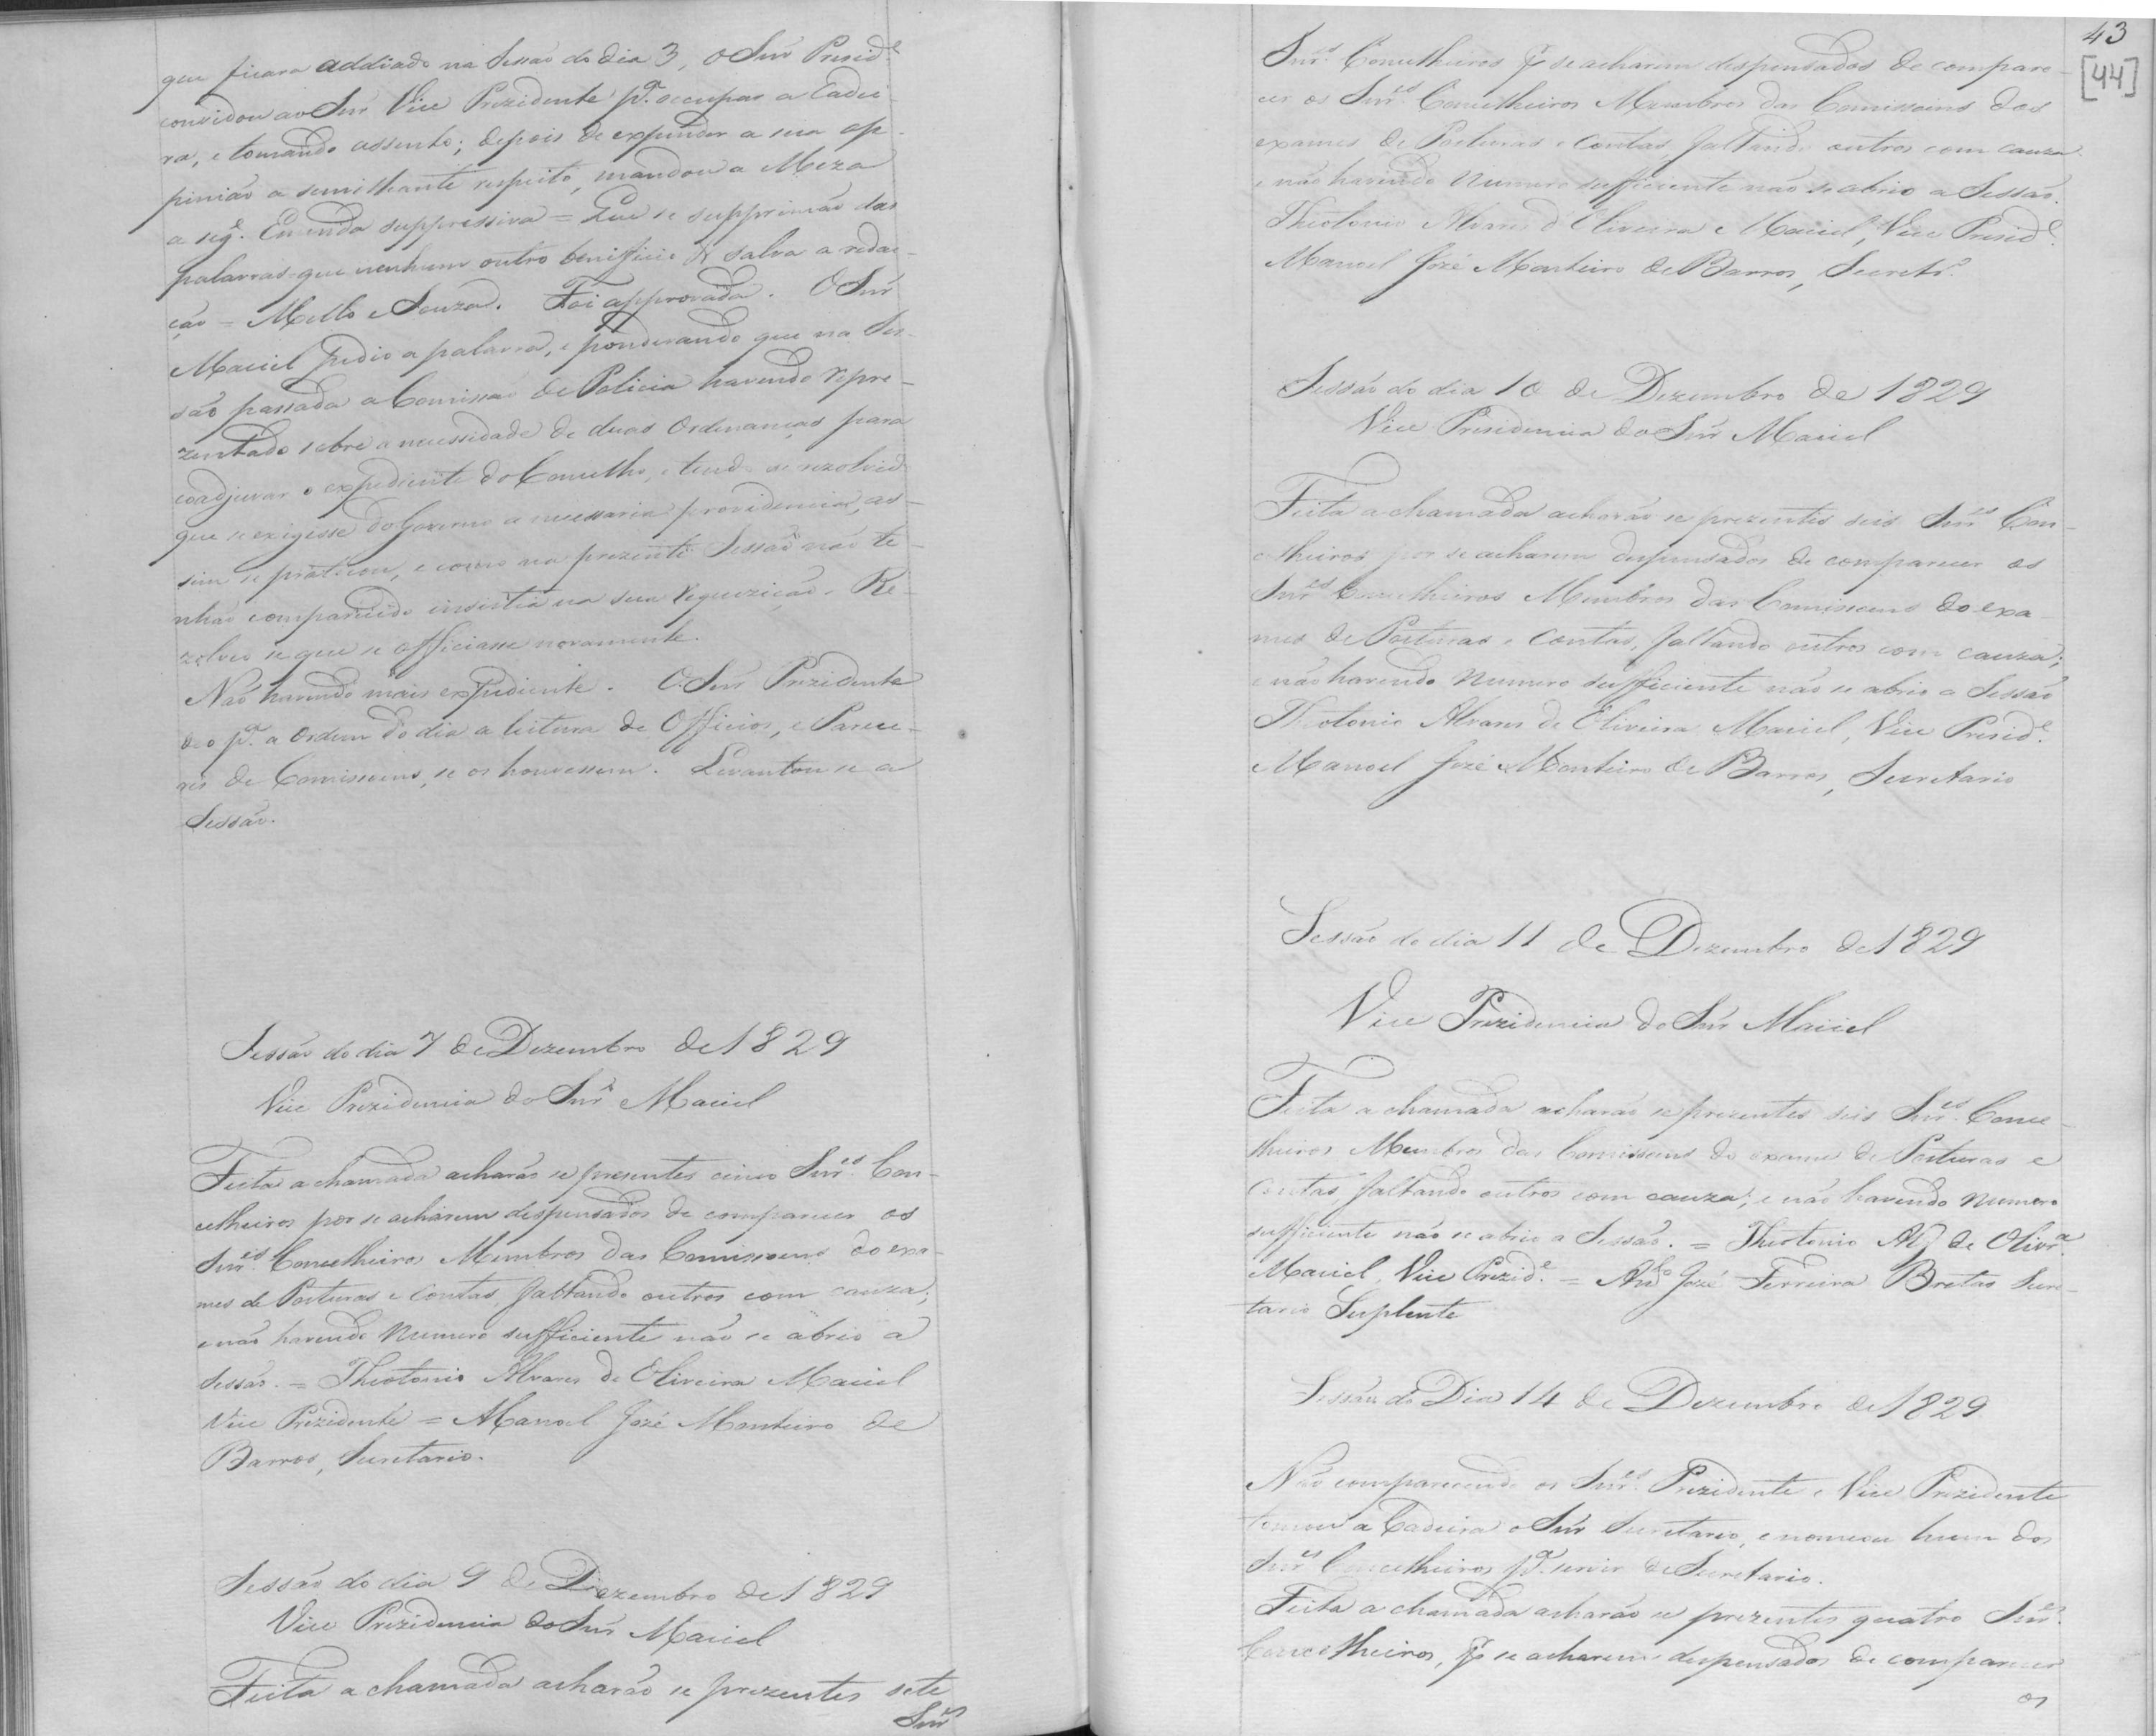 que ficara addiado na Sessão do dia 3, o Snr Presid.e
convidou ao Snr Vice Prezidente p.a occupar a Cadei-
ra, e tomando assento; depois de expender a sua op-
pinião a semilhante respeito, mandou a Meza
a seg.e Emenda suppressiva = Que se supprimão das
palavras = que nenhum outro benificio & salva a redac-
ção = Mello e Souza. Foi approvada. O Snr
Maciel pedio a palavra, e ponderando que na Ses-
são passada a Comissão de Policia havendo repre-
zentado sobre a necessidade de duas Ordenanças para
coadjuvar o expediente do Concelho, e tendo se rezolvido
que se exigisse do Governo a necessaria providencia, as-
sim se praticou, e como na prezente Sessão não te-
nhão comparecido insistia na sua requizição. Re-
zolveo se que se officiasse novamente.
Não havendo mais expediente. O Snr Prezidente
deo p.a a Ordem do dia a leitura de Officios, e Parece-
res de Comissoens, se os houvessem. Levantou se a
Sessão.
Sessão do dia 7 de Dezembro de 1829
Vice Prezidencia do Snr Maciel
Feita a chamada acharão se presentes cinco Snr.es Con-
celheiros por se acharem dispensados de comparecer os
Snr.es Concelheiros Membros das Comissoens do exa-
mes de Posturas e Contas, faltando outros com cauza;
e não havendo numero sufficiente não se abrio a
Sessão. = Theotonio Alvares de Oliveira Maciel
Vice Prezidente = Manoel José Monteiro de
Barros, Secretario.
Sessão do dia 9 de Dezembro de 1829
Vice Prezidencia do Snr Maciel
Feita a chamada acharão se prezentes sete
Snr.es
43
[44]
Snr.es Concelheiros p.r se acharem despensados de compare-
cer os Snr.es Concelheiros Membros das Comissoens dos
exames de Posturas e Contas, faltando outros com cauza
e não havendo numero sufficiente não se abrio a Sessão.
Theotonio Alvares d'Oliveira e Maciel, Vice Presid.e
Manoel José Monteiro de Barros, Secretr.o
Sessão do dia 10 de Dezembro de 1829
Vice Presidencia do Snr Maciel
Feita a chamada acharão se prezentes seis Snr.es Con-
celheiros por se acharem dispensados de comparecer os
Snr.es Concelheiros Membros das Comissoens do exa-
mes de Posturas e Contas, faltando outros com cauza;
e não havendo numero sufficiente não se abrio a Sessão
Theotonio Alvares de Oliveira Maciel, Vice Presid.e
Manoel José Monteiro de Barros, Secretario
Sessão do dia 11 de Dezembro de 1829
Vice Prezidencia do Snr Maciel
Feita a chamada acharão se prezentes seis Snr.es Conce-
lheiros Membros das Comissoens do exame de Posturas e
Contas, faltando outros com cauza; e não havendo numero
sufficiente não se abrio a Sessão. = Theotonio Alz de Olivr.a
Maciel, Vice Prezid.e = José Ferreira Bretas Secre-
tario Suplente
Sessão do Dia 14 de Dezembro de 1829
Não comparecendo os Snr.es Prezidente e Vice Prezidente
tomou a Cadeira o Snr Secretario, e nomeou hum dos
Snr.es Concelheiros p.a servir de Secretario.
Feita a chamada acharão se prezentes quatro Snr.es
Concelheiros, p.r se acharem despensados de comparecer
os